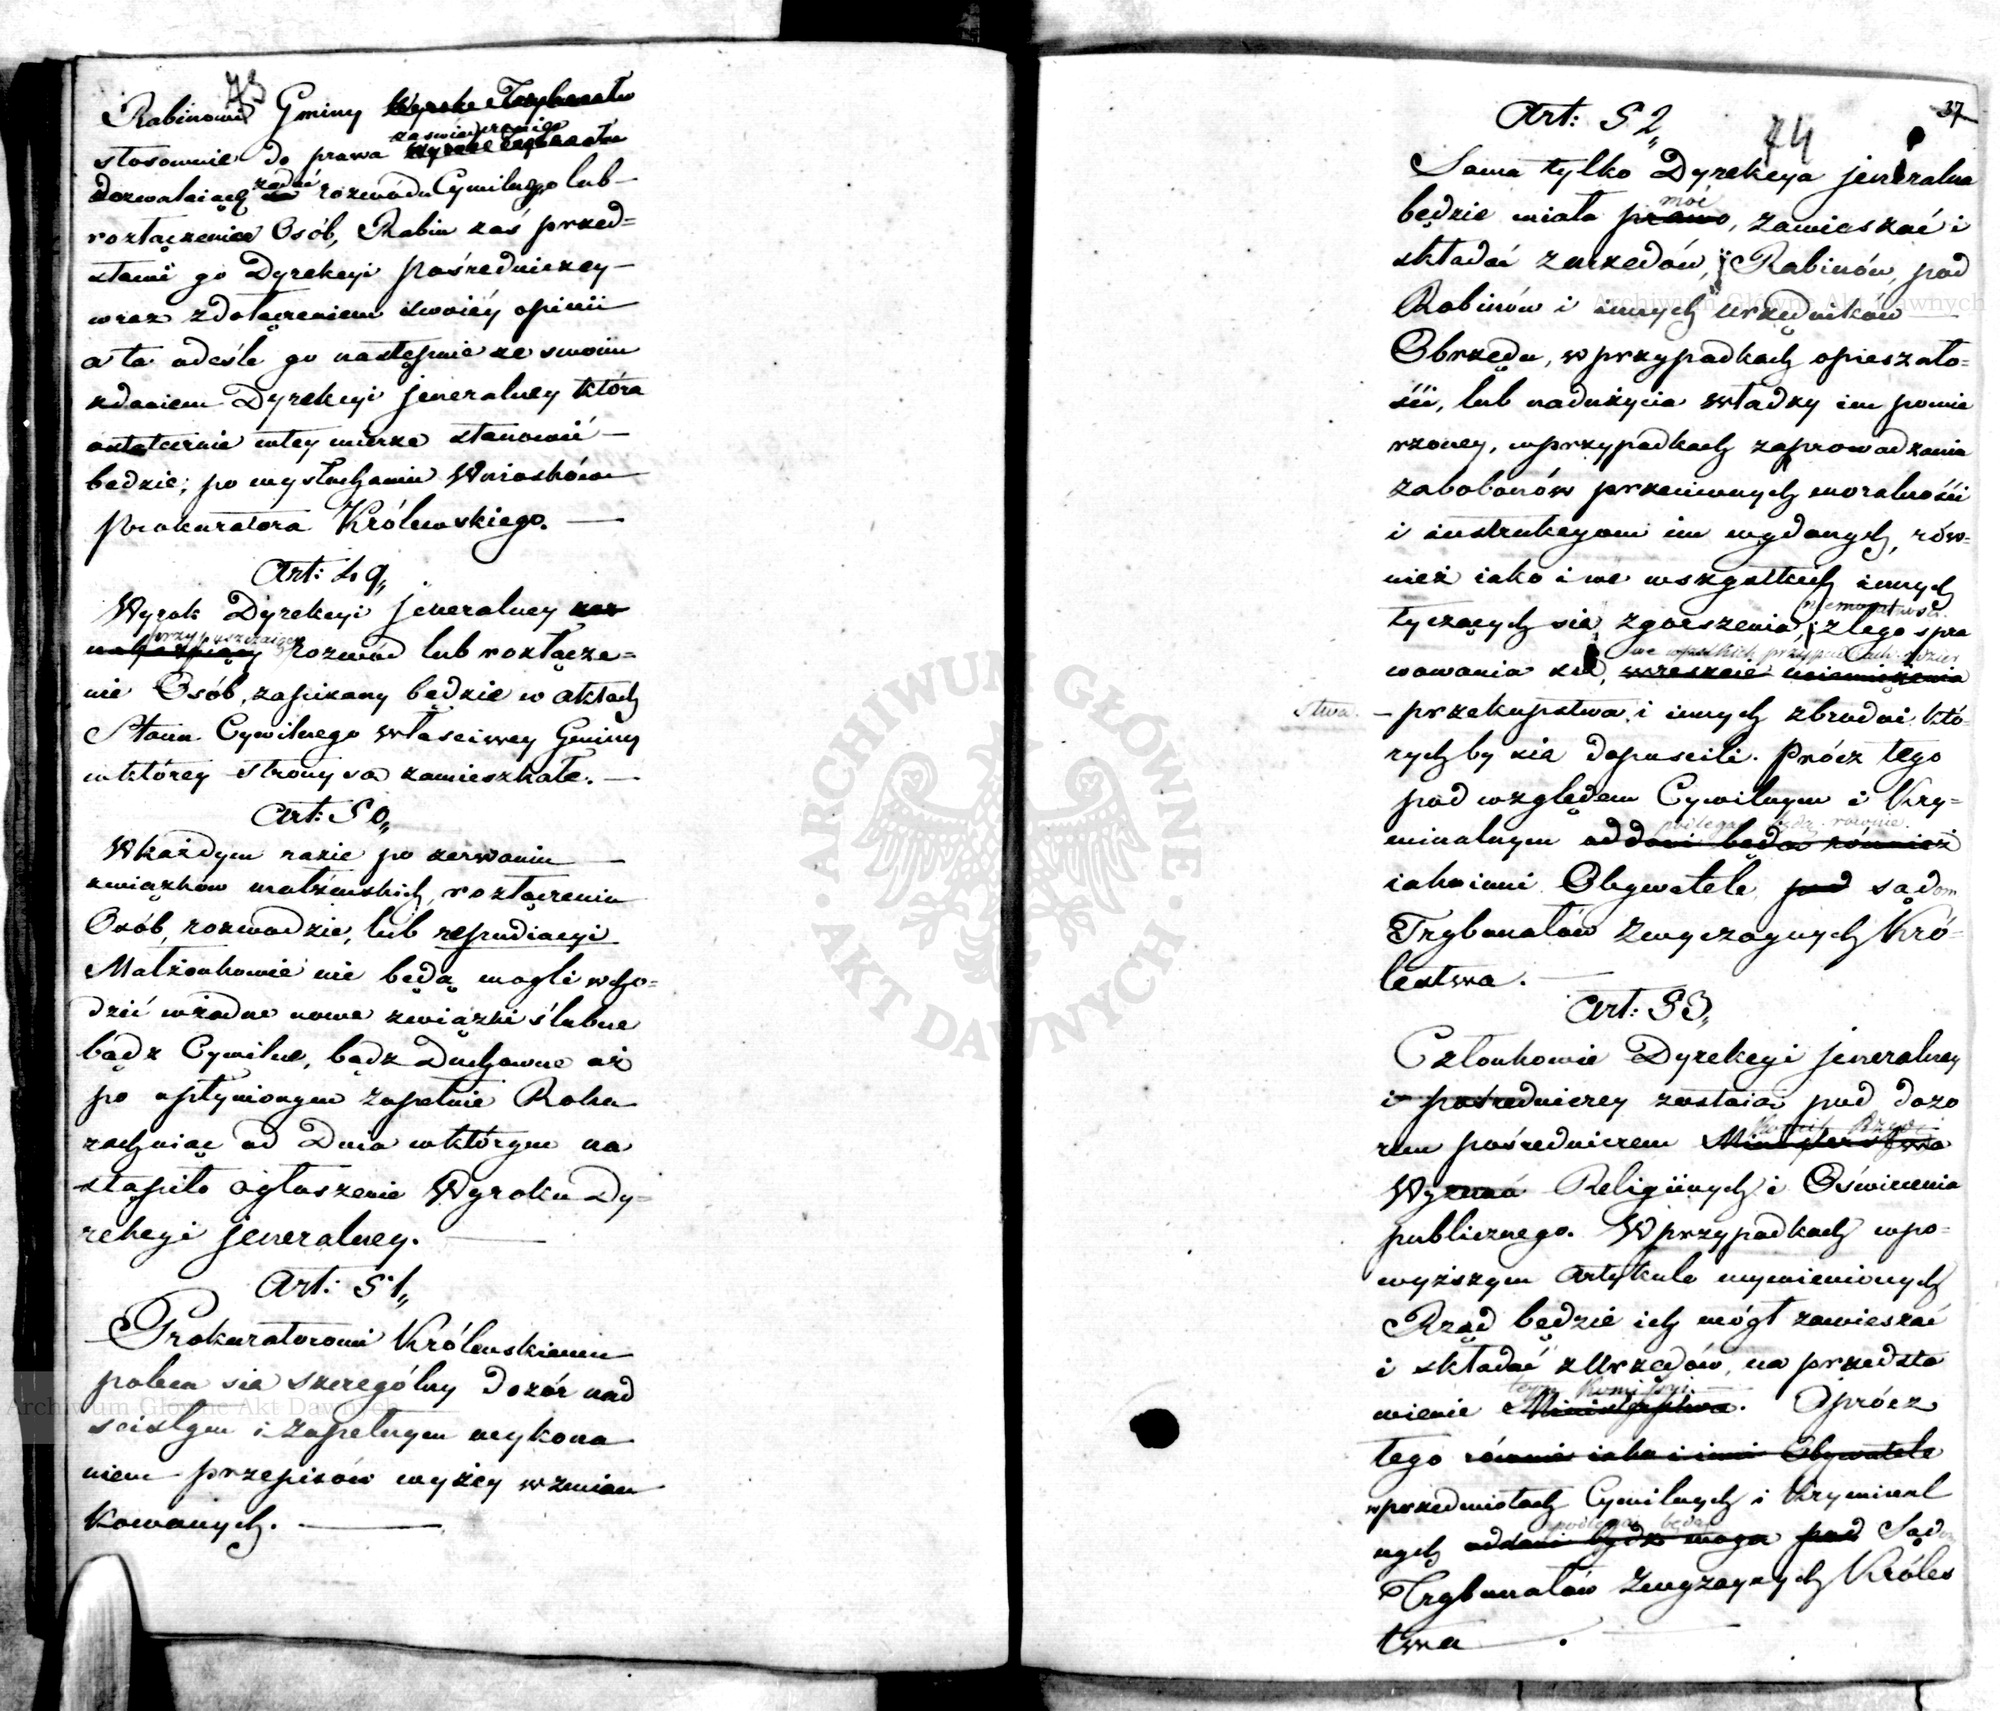 73
Rabinowi Gminy Wyrok Trybunału
zaświadczenie
stosownie do prawa
żądać
dozwalaiącey rozwodu Cywilnego lub
rozłączenia Osób, Rabin zaś przed=
stawi go Dyrekcyi pośredniczey
wraz z dołączeniem swoiéy opinii
a ta odeśle go następnie ze swoim
zdaniem Dyrekcyi jeneralney która
ostatecznie w tey mierze stanowić
będzie; po wysłuchaniu Wniosków
Prokuratora Królewskiego.
Art: 49,,
Wyrok Dyrekcyi jeneralney
przypuszczaiący
rozwód lub rozłącze=
nie Osób, zapisany będzie w aktach
Stanu Cywilnego właściwey Gminy
w którey strony są zamieszkałe.
Art: 50,,
W każdym razie po zerwaniu
związków małżeńskich, rozłączeniu
Osób, rozwodzie, lub repudiacyi
Małżonkowie nie będą mogli wcho=
dzić w żadne nowe związki ślubne
bądź Cywilne, bądz Duchowne aż
po upłynionym zupełnie Roku
zacząwszy od Dnia w którym na
stąpiło ogłoszenie Wyroku Dy=
rekcyi jeneralney.
Art: 51,,
Prokuratorowi Królewskiemu
poleca się szczególny dozór nad
scisłym i zupełnym wykona
niem przepisów wyżey wzmian
kowanych.
37
Art: 52,,
74
Sama tylko Dyrekcya jeneralna
moc
będzie miała prawo, zawieszać i
składać z urzędów, Rabinów, pod
Rabinów i innych urzędników
Obrzędu, w przypadkach opieszało=
ści, lub nadużycia władzy im powie
rzoney, w przypadkach zaprowadzania
zabobonów przeciwnych moralności
i instrukcyom im wydanych, rów=
nież iako i we wszystkich innych
niemoralności
tyczących się zgorszenia, złego spra
we wszystkich przypadkach zdzier
wowania się, wreszcie uciemiężenia
stwa. – przekupstwa i innych zbrodni któ=
rychby się dopuscili. Prócz tego
pod względem Cywilnym i Kry=
podlegać będą równie
minalnym oddani będą również
iako inni Obywatele pod sądom
Trybunałów zwyczaynych Kró=
lestwa.
Art: 53,,
Członkowie Dyrekcyi jeneralney
i pośredniczey zostaią pod dozo
Komisyi Rząd:
rem pośredniczem Ministerstwa
Wyznań Religiinych i Oświecenia
publicznego. W przypadkach w po=
wyższym Artykule wymienionych
Rząd będzie ich mógł zawieszać
i składać z Urzędów, na przedsta
teyże Komissyi.
wienie Ministerstwa. Oprócz
tego równie iako i inni Obywatele
w przedmiotach Cywilnych i Kryminal
podlegać będą
nych oddani bydź mogą pod Sądom
Trybunałów Zwyczaynych Króles
twa.
ARCHIWUM GŁÓWNE AKT DAWNYCH
Archiwum Główne Akt Dawnych
Archiwum Główne Akt Dawnych